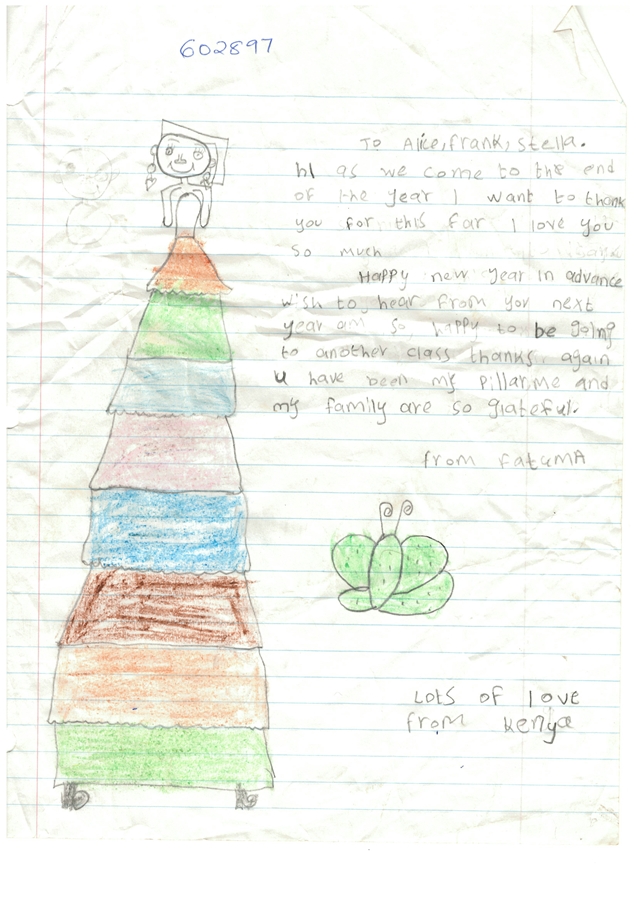 602897
To Alice, Frank, Stella.
hI as we come to the end
of the year I want to thank
you for this far I love you
so much
Happy new year in advance
wish to hear from you next
year am so happy to be going
to another class thanks again
u have been my pillar, me and
my family are so grateful.
from FatumA
LoTs of love
from Kenya